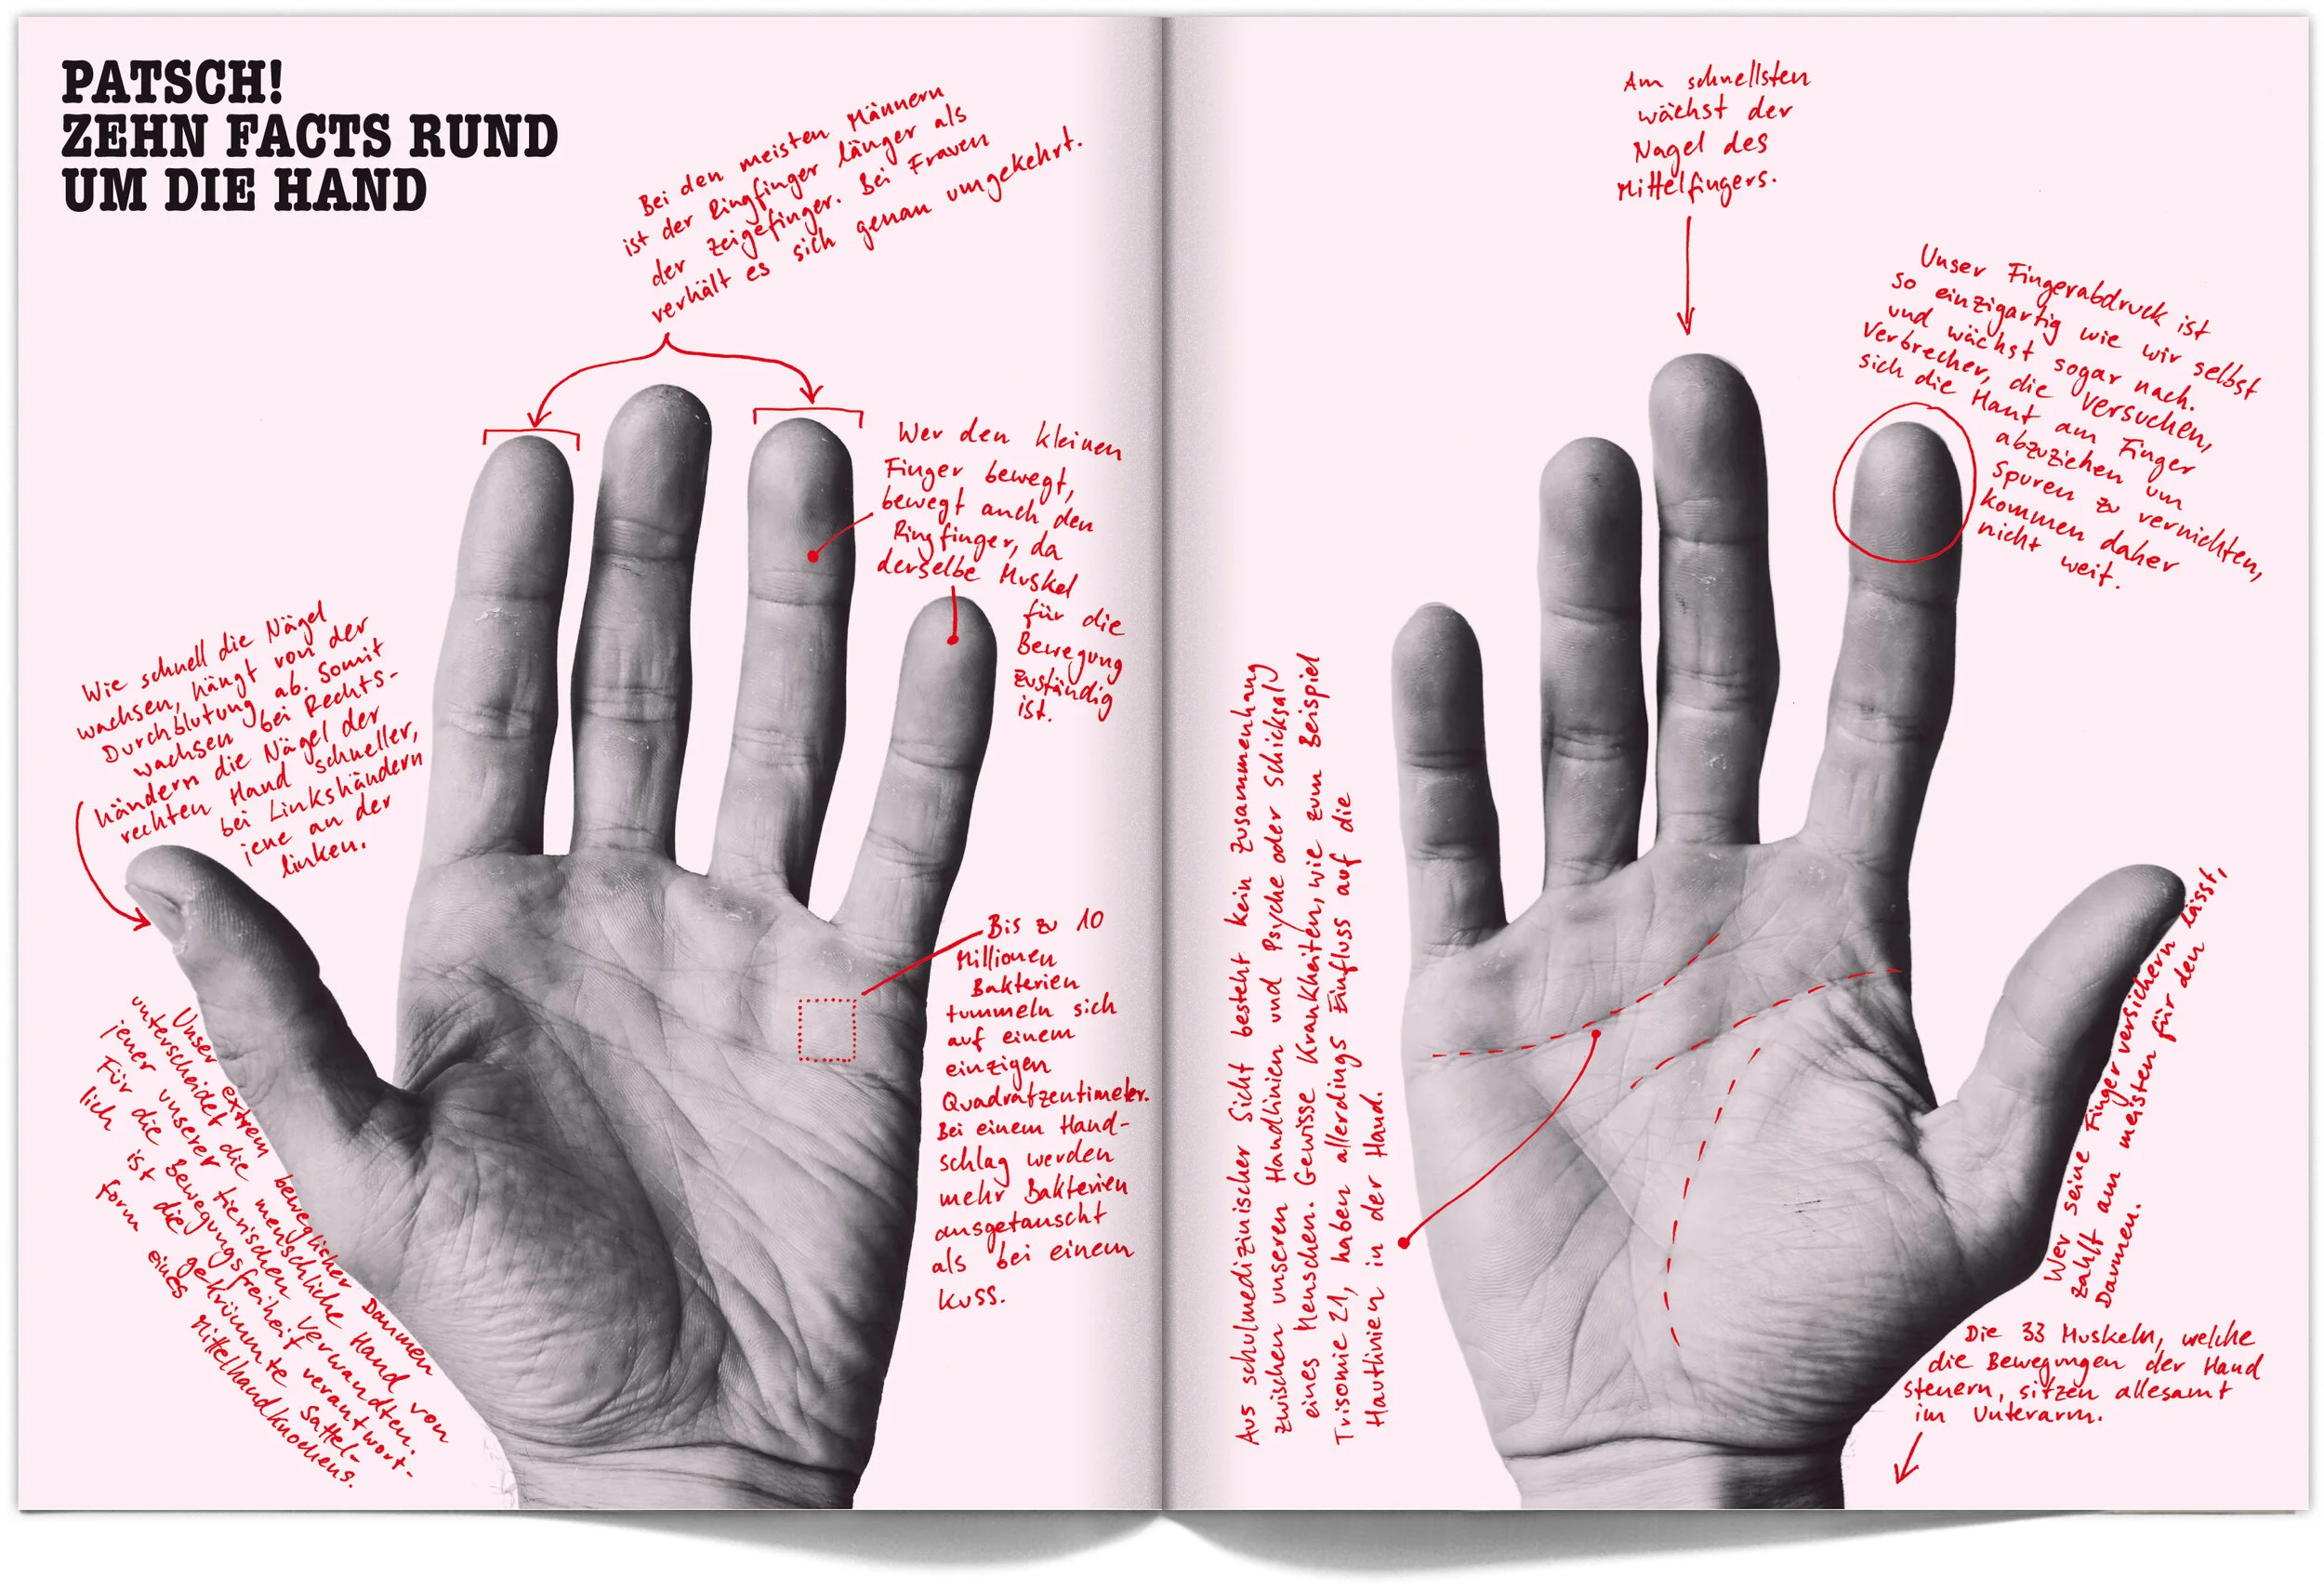 PATSCH!
ZEHN FACTS RUND
UM DIE HAND
Bei den meisten Männern
ist der Ringfinger länger als
der Zeigefinger. Bei Frauen
verhält es sich genau umgekehrt.
Wer den kleinen
Finger bewegt,
bewegt auch den
Ringfinger, da
derselbe Muskel
für die
Bewegung
zuständig
ist.
Wie schnell die Nägel
wachsen, hängt von der
Durchblutung ab. Somit
wachsen bei Rechts-
händern die Nägel der
rechten Hand schneller,
bei Linkshändern
jene an der
linken.
Bis zu 10
Millionen
Bakterien
tummeln sich
auf einem
einzigen
Quadratzentimeter.
Bei einem Hand-
schlag werden
mehr Bakterien
ausgetauscht
als bei einem
Kuss.
Unser extrem beweglicher Daumen
unterscheidet die menschliche Hand von
jener unserer tierischen Verwandten.
Für die Bewegungsfreiheit verantwort-
lich ist die gekrümmte Sattel-
form eines Mittelhandknochens.
Am schnellsten
wächst der
Nagel des
Mittelfingers.
Unser Fingerabdruck ist
so einzigartig wie wir selbst
und wächst sogar nach.
Verbrecher, die versuchen,
sich die Haut am Finger
abzuziehen um
Spuren zu vernichten,
kommen daher
nicht weit.
Aus schulmedizinischer Sicht besteht kein Zusammenhang
zwischen unseren Handlinien und Psyche oder Schicksal
eines Menschen. Gewisse Krankheiten, wie zum Beispiel
Trisomie 21, haben allerdings Einfluss auf die
Hautlinien in der Hand.
Wer seine Finger versichern lässt,
zahlt am meisten für den
Daumen.
Die 33 Muskeln, welche
die Bewegungen der Hand
steuern, sitzen allesamt
im Unterarm.